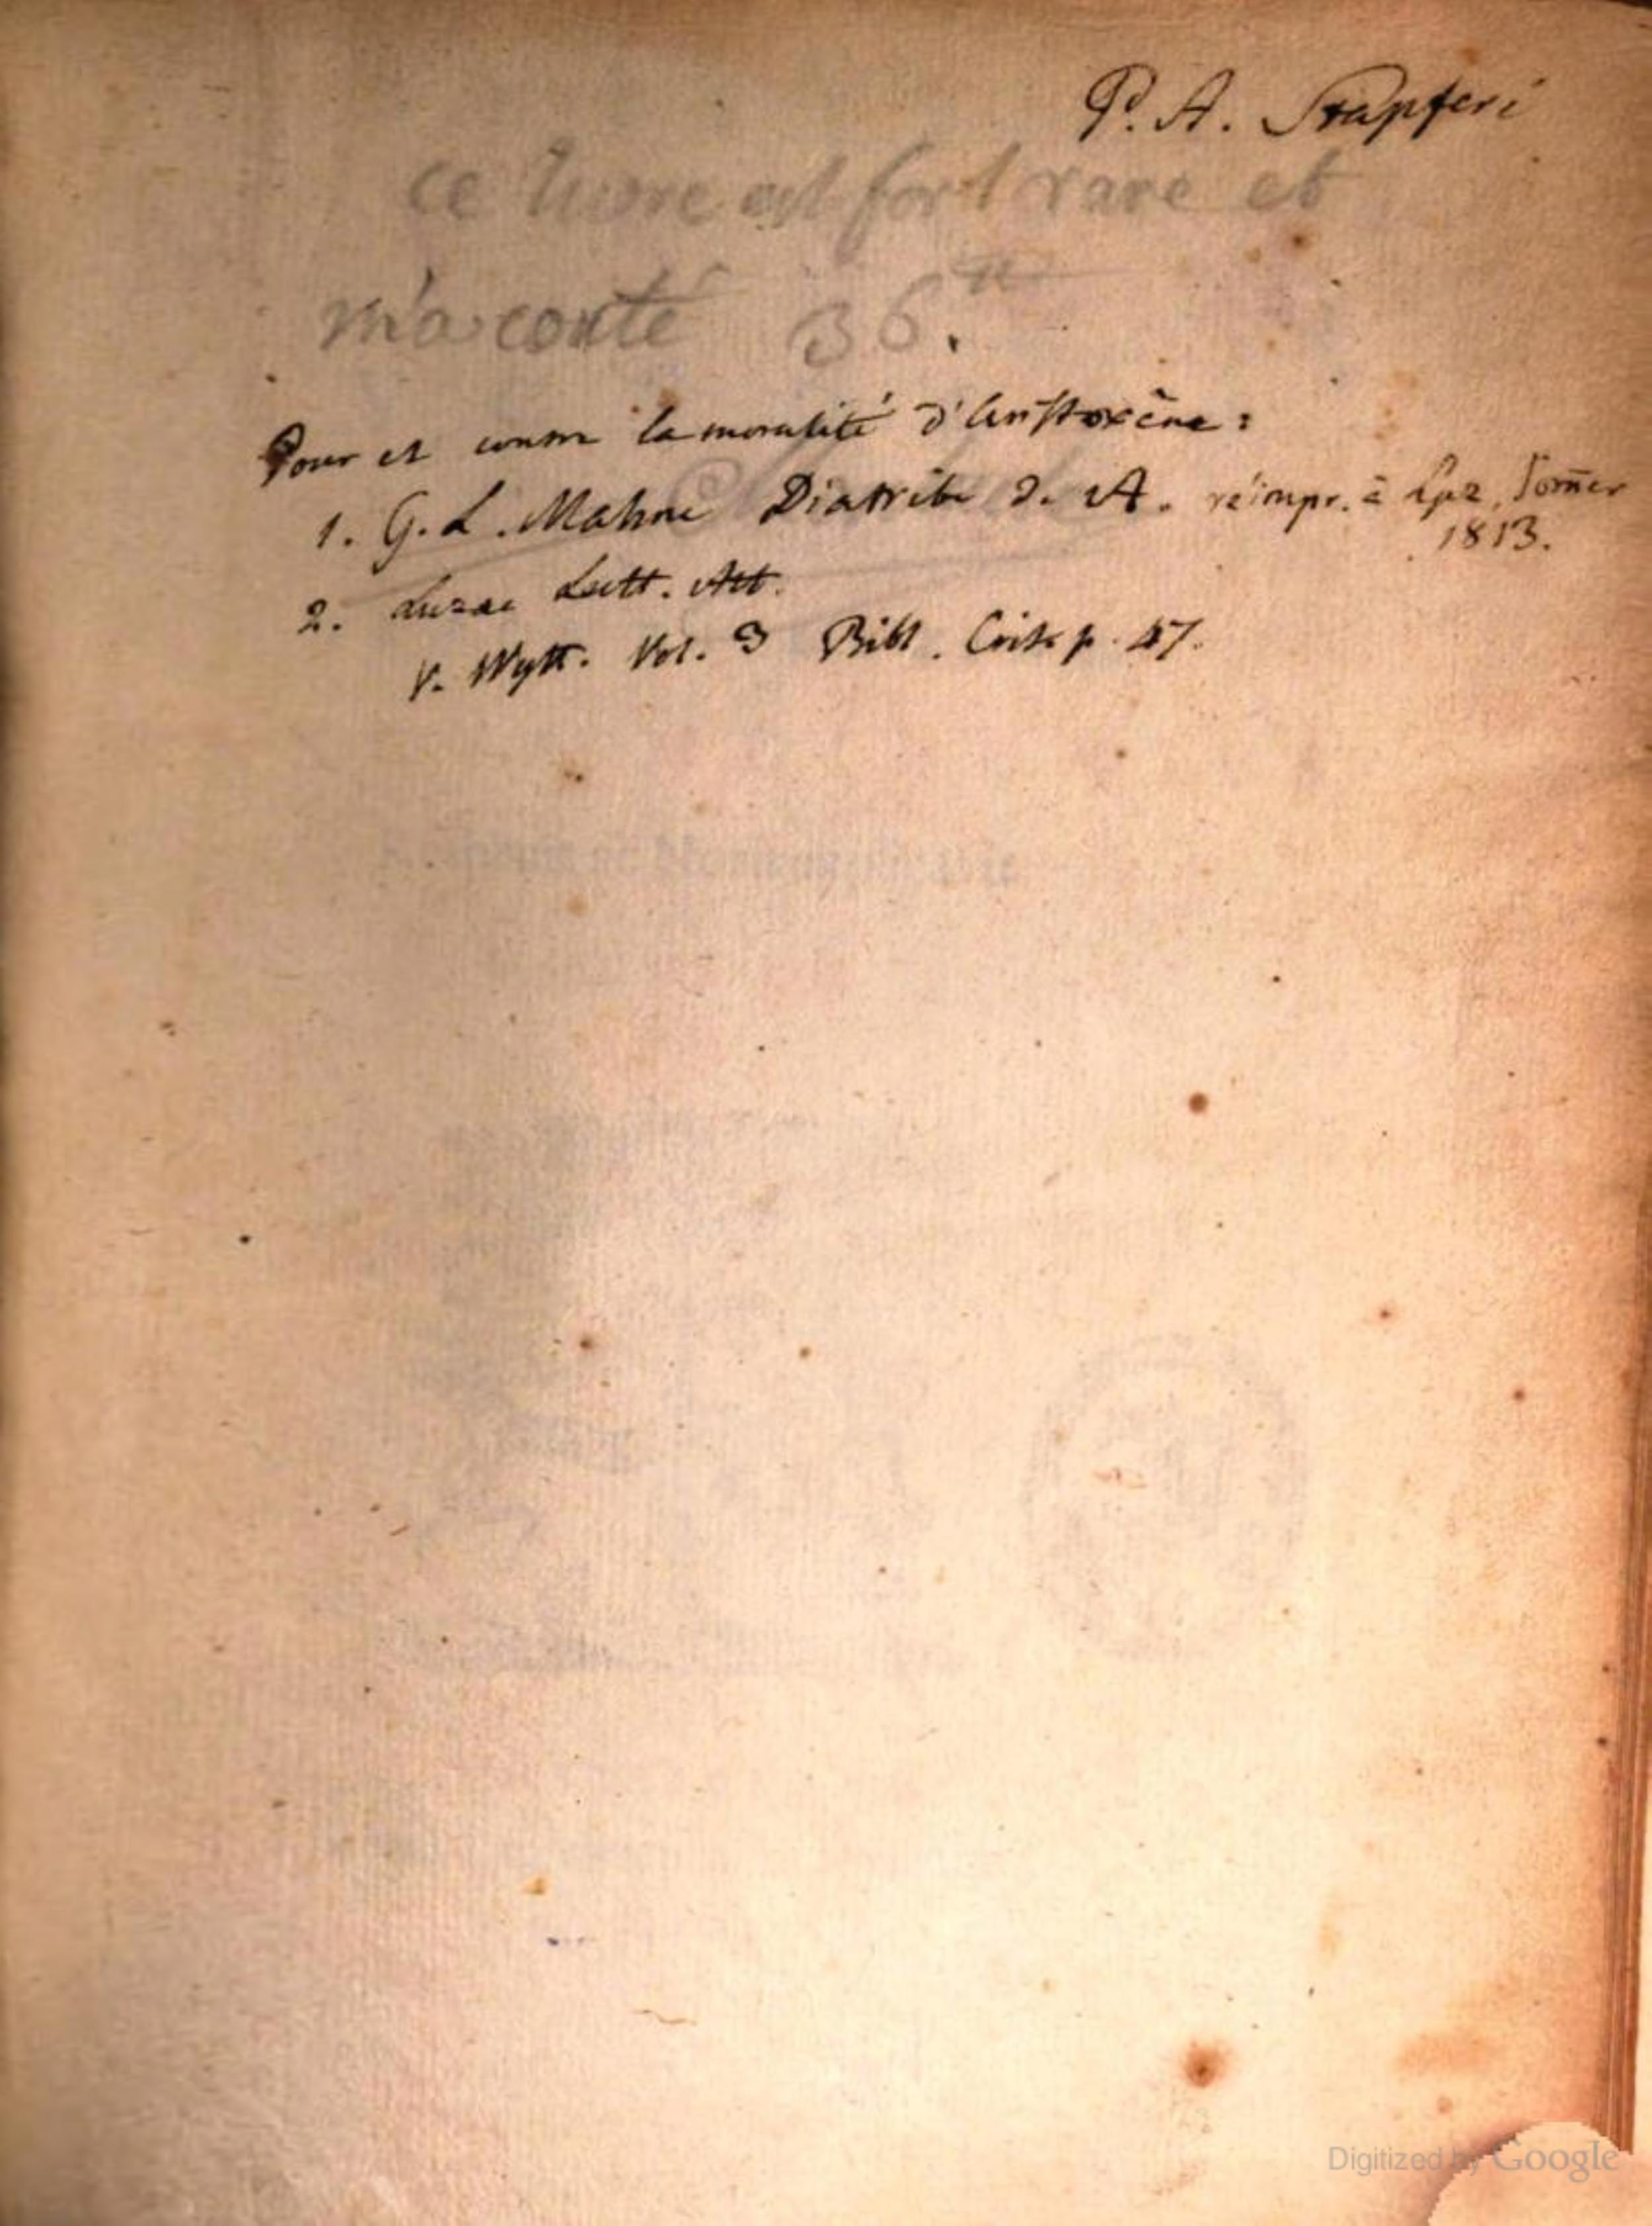 P. A. Stapferi
ce livre est fort rare et
m'a couté 36.tt
Pour et contre la moralité d'Aristoxène:
1. G. L. Mahne Diatribe d. A. réimpr. à Lpz
1813.
2. Luzac Lectt. Att.
V. Wytt. Vol. 3 Bibl. Crit. p. 47.
Digitized by Google